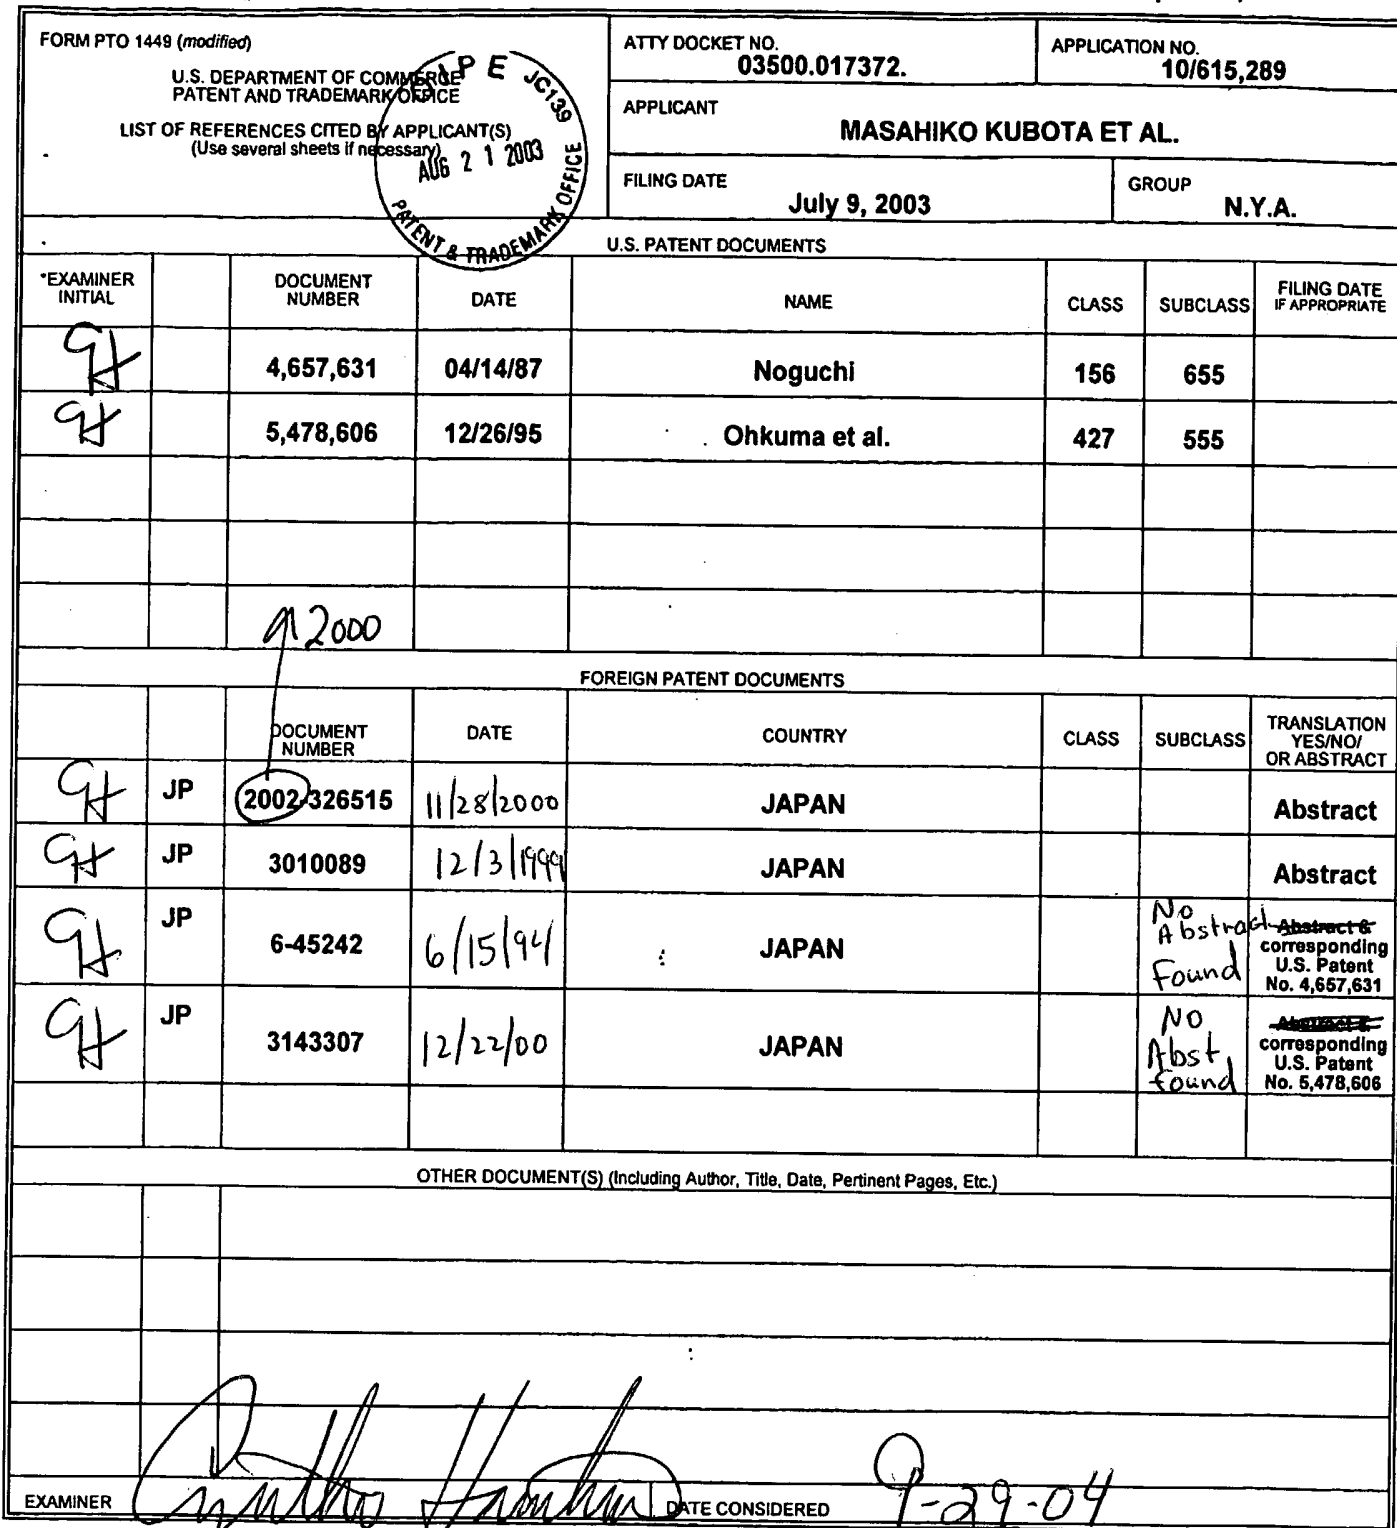 FORM PTO 1449 (modified)
U.S. DEPARTMENT OF COMMERCE
PATENT AND TRADEMARK OFFICE
LIST OF REFERENCES CITED BY APPLICANT(S)
(Use several sheets if necessary)
PE JC139
AUG 21 2003
PATENT & TRADEMARK OFFICE
ATTY DOCKET NO.
03500.017372.
APPLICATION NO.
10/615,289
APPLICANT
MASAHIKO KUBOTA ET AL.
FILING DATE
July 9, 2003
GROUP
N.Y.A.
U.S. PATENT DOCUMENTS
*EXAMINER INITIAL DOCUMENT NUMBER DATE NAME CLASS SUBCLASS FILING DATE IF APPROPRIATE
CH 4,657,631 04/14/87 Noguchi 156 655
CH 5,478,606 12/26/95 Ohkuma et al. 427 555
2000
FOREIGN PATENT DOCUMENTS
DOCUMENT NUMBER DATE COUNTRY CLASS SUBCLASS TRANSLATION YES/NO/ OR ABSTRACT
CH JP 2002-326515 11/28/2000 JAPAN Abstract
CH JP 3010089 12/3/1999 JAPAN Abstract
CH JP 6-45242 6/15/94 JAPAN No Abstract Found Abstract & corresponding U.S. Patent No. 4,657,631
CH JP 3143307 12/22/00 JAPAN No Abst. found Abstract & corresponding U.S. Patent No. 5,478,606
OTHER DOCUMENT(S) (Including Author, Title, Date, Pertinent Pages, Etc.)
EXAMINER
DATE CONSIDERED 9-29-04